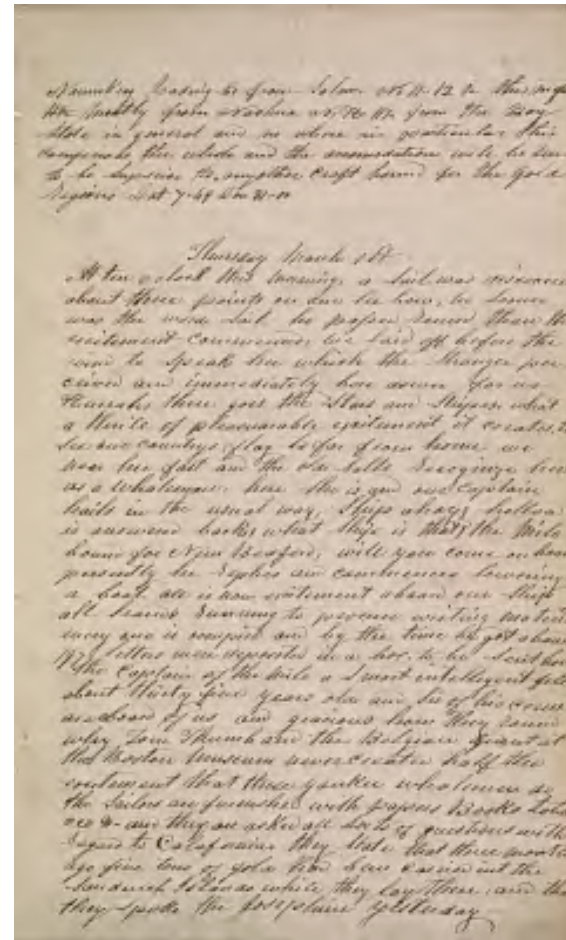 from Salem No 11. 12 in this
mostly from Nashua No from the Bay
State in general and no where in particular this
comprises the whole and the accomodation will be
to be superior to any other craft bound for the Gold
Regions Lat 7-49 Lon 31-00
Thursday March 1st
At ten o clock this morning, a sail was discovered
about three points on our lee bow, no sooner
was the word sail ho passed round than the
excitement commences we laid off before the
wind to speak her which the stranger per
ceived and immediately bore down for us
Hurrah, there goes the Stars and Stripes, what
a thrill of pleasurable excitement it creates, to
see our countrys flag so far from home we
near her fast and the old salts recognize her
as a whaleman. here she is and our Captain
hails in the usual way, Ships ahoy, halloo
is answered back, what ship is that, the Milo
bound for New Bedford, will you come on board
presently he replies and commences lowering
a boat all is now excitement aboard our ship
all hands running to procure writing materi
every one is occupied and by the time he got aboard
letters were deposited in a box, to be sent home
The Captain of the Milo a smart intelligent fell
about thirty five years old and six of his crew
are aboard of us and gracious how they
why Tom Thumb and the Belgian Giant at
the Boston Museum never created half the
excitement that these yankee whalemen do
the Sailors are furnished with papers Books Toba
cco &- and they are asked all sorts of questions with
regard to California they state that three months
ago five tons of gold had been carried in to the
Sandwich Islands while they lay there, and that
they spoke the Josephine yesterday